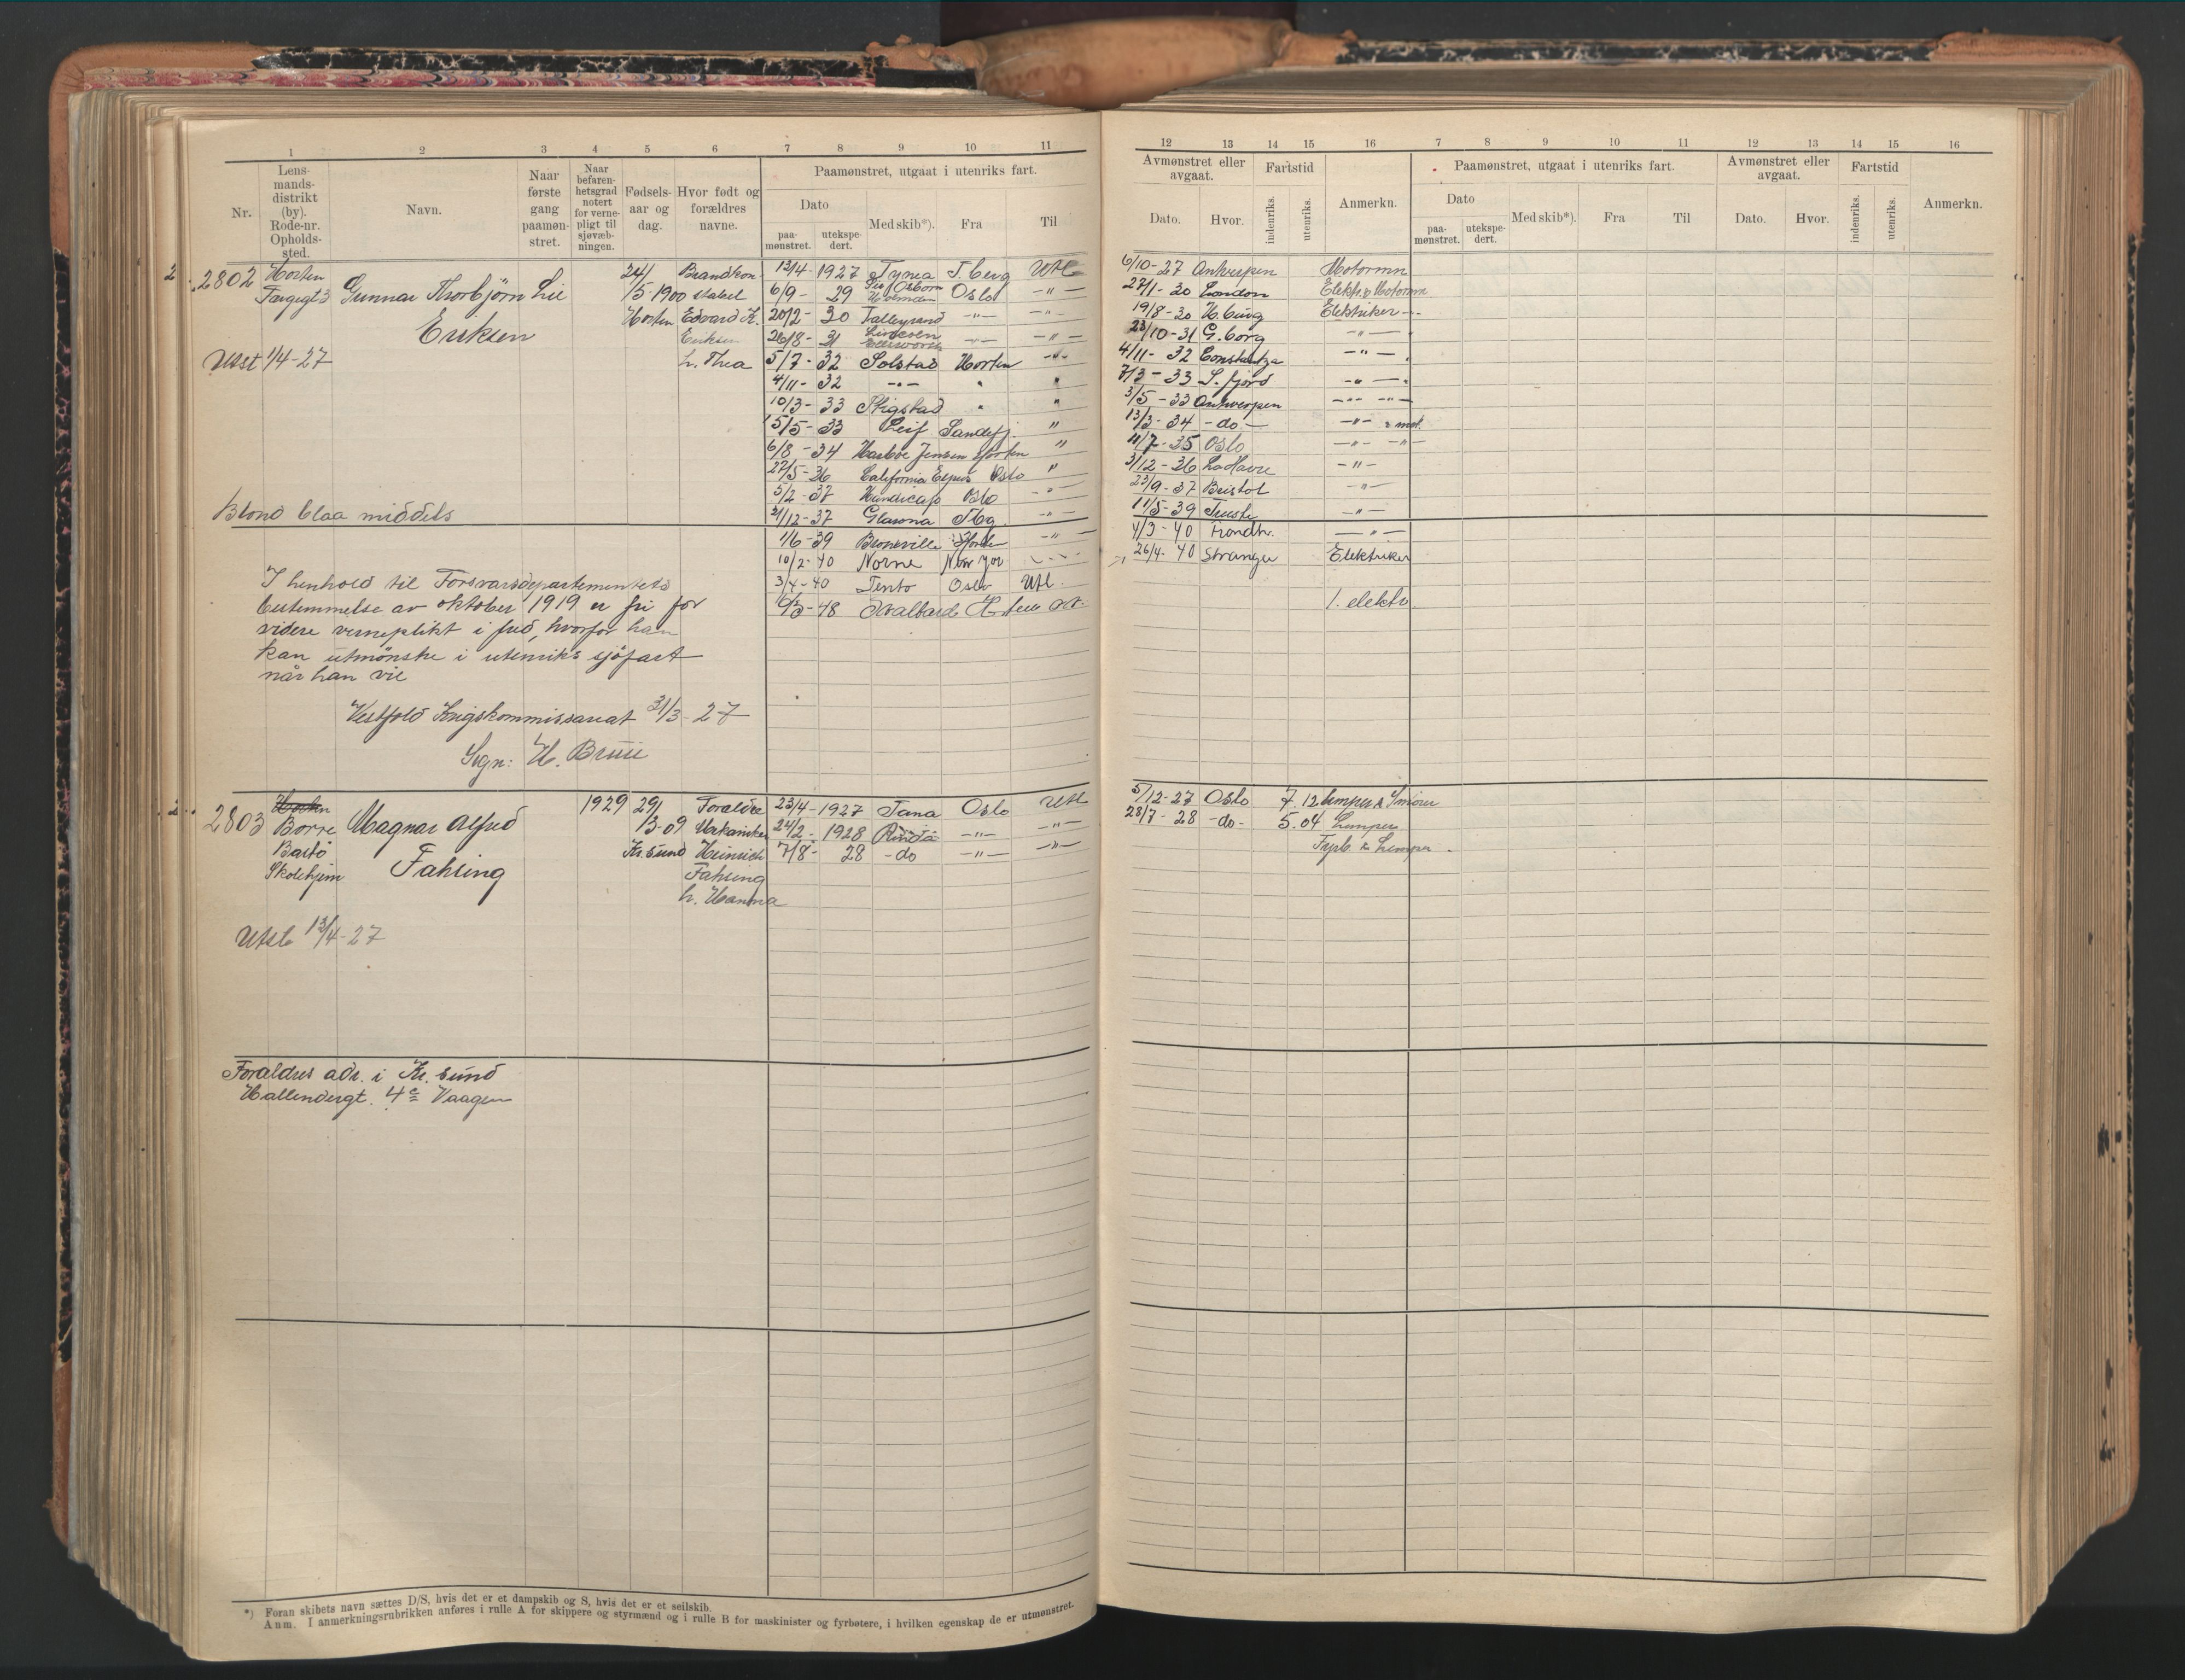 1 2 3 4 5 6 7 8 9 10 11
Nr.
Lens-
mands-
distrikt
(by).
Rode-nr.
Opholds-
sted.
Navn.
Naar
første
gang
paamøn-
stret.
Naar
befaren-
hetsgrad
notert
for verne-
pligt til
sjøvæb-
ningen.
Fødsels-
aar og
dag.
Hvor født og
forældres
navne.
Paamønstret, utgaat i utenriks fart.
Dato
paa-
mønstret.
utekspe-
dert.
Med skib*).
Fra
Til
2 2802 Horten Gunnar Thorbjörn Lie 24/ Brandkon 12/4- 1927 Tyma T.berg Utl
Færgegt 3 /5-1900 stabel 6/9- 29 Oslo -"-
Eriksen Horten Edvard K. 20/2- 30 Talleyrand -"- -"-
Eriksen 26/8- 31 -"- -"-
Utst 1/4-27 h. Thea 5/7- 32 Solstad Horten -"-
4/11- 32 -"- " "
10/3- 33 Thigstad " "
15/5-33 Leif Sandefj. "
6/8-34 Harboe Jensen Horten "
27/5-36 California Expres Oslo "
5/2-37 Handicap Oslo -"-
Blond blaa middels 21/12-37 Glarona Tbg -"-
1/6-39 Bronxville -"-
10/2-40 Norne New Yor
I henhold til Forsvarsdepartementets 3/4-40 Tento Oslo Utl.
bestemmelse av oktober 1919 er fri for -48 Svalbard
videre verneplikt i fred, hvorfor han
kan utmönstre i utenriks sjöfart
når han vil
Vestfold Krigskommissariat 31/3-27
Sign: H. Bruu
2 2803 Horten Magnar Alfred 1929 29/ Foreldre 23/4-1927 Tana Oslo Utl
Borre /3-09 Mekaniker 24/2- 1928 Rindö -"- -"-
Bastö Fahsing Kr.sund Heinrich 7/8- 28 -do -"- -"-
Skolehjem Fahsing
h. Hanna
Utst 13/4-27
Foraldres adr. i Kr. sund
Hallendergt. 4c Vaagen
*) Foran skibets navn sættes D/S, hvis det er et dampskib og S, hvis det er et seilskib.
Anm. I anmerkningsrubrikken anføres i rulle A for skippere og styrmænd og i rulle B for maskinister og fyrbøtere, i hvilken egenskap de er utmønstret.
12 13 14 15 16 7 8 9 10 11 12 13 14 15 16
Avmønstret eller
avgaat.
Fartstid
Dato.
Hvor.
indenriks.
utenriks.
Anmerkn.
Paamønstret, utgaat i utenriks fart.
Dato
paa-
mønstret.
utekspe-
dert.
Med skib*).
Fra
Til
Avmønstret eller
avgaat.
Fartstid
Dato.
Hvor.
indenriks.
utenriks.
Anmerkn.
6/10-27 Antwerpen Motormn
27/1-30 London Elektr. & Motormn
19/8-30 H.burg Elektriker
23/10-31 G.borg -"-
4/11-32 Constantza -"-
7/3-33 S.fjord -"-
3/5-33 Antwerpen -"- -"-
13/3-34 -do- -"- & mot.
11/7-35 Oslo -"- -"-
3/12-36 La Havre -"-
23/9-37 Bristol -"-
11/5-39 Trieste -"-
4/3-40 Trondh. -"-
26/4-40 Stranger Elektriker
1. elektr.
5/12-27 Oslo 7.12 Lemper & Smörer
28/7-28 -do- 5.04 Lemper
Fyrb. & Lemper